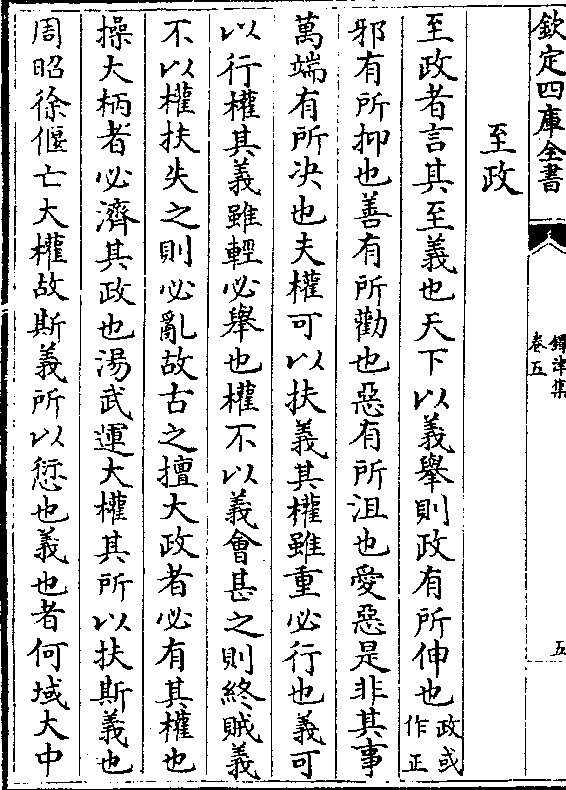 欽定四庫全書
鐔津集
卷五
五
至政
至政者言其至義也天下以義舉則政有所伸也政或作正
邪有所抑也善有所勸也惡有所沮也愛惡是非其事
萬端有所决也夫權可以扶義其權雖重必行也義可
以行權其義雖輕必舉也權不以義會甚之則終賊義
不以權扶失之則必亂故古之擅大政者必有其權也
操大柄者必濟其政也湯武運大權其所以扶斯義也
周昭徐偃亡大權故斯義所以愆也義也者何域大中